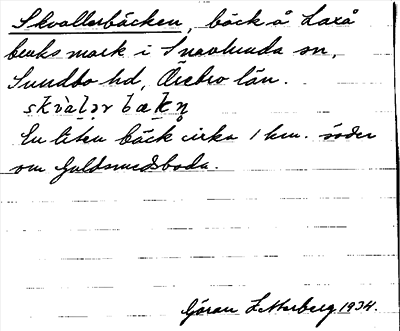 Skvallerbäcken, bäck å Laxå
bruks mark i Snavlunda sn,
Sundbo hd, Örebro län.
skvalər bækn̥
En liten bäck cirka 1 km. söder
om Guldsmedsboda.
Göran Zetterberg 1934.